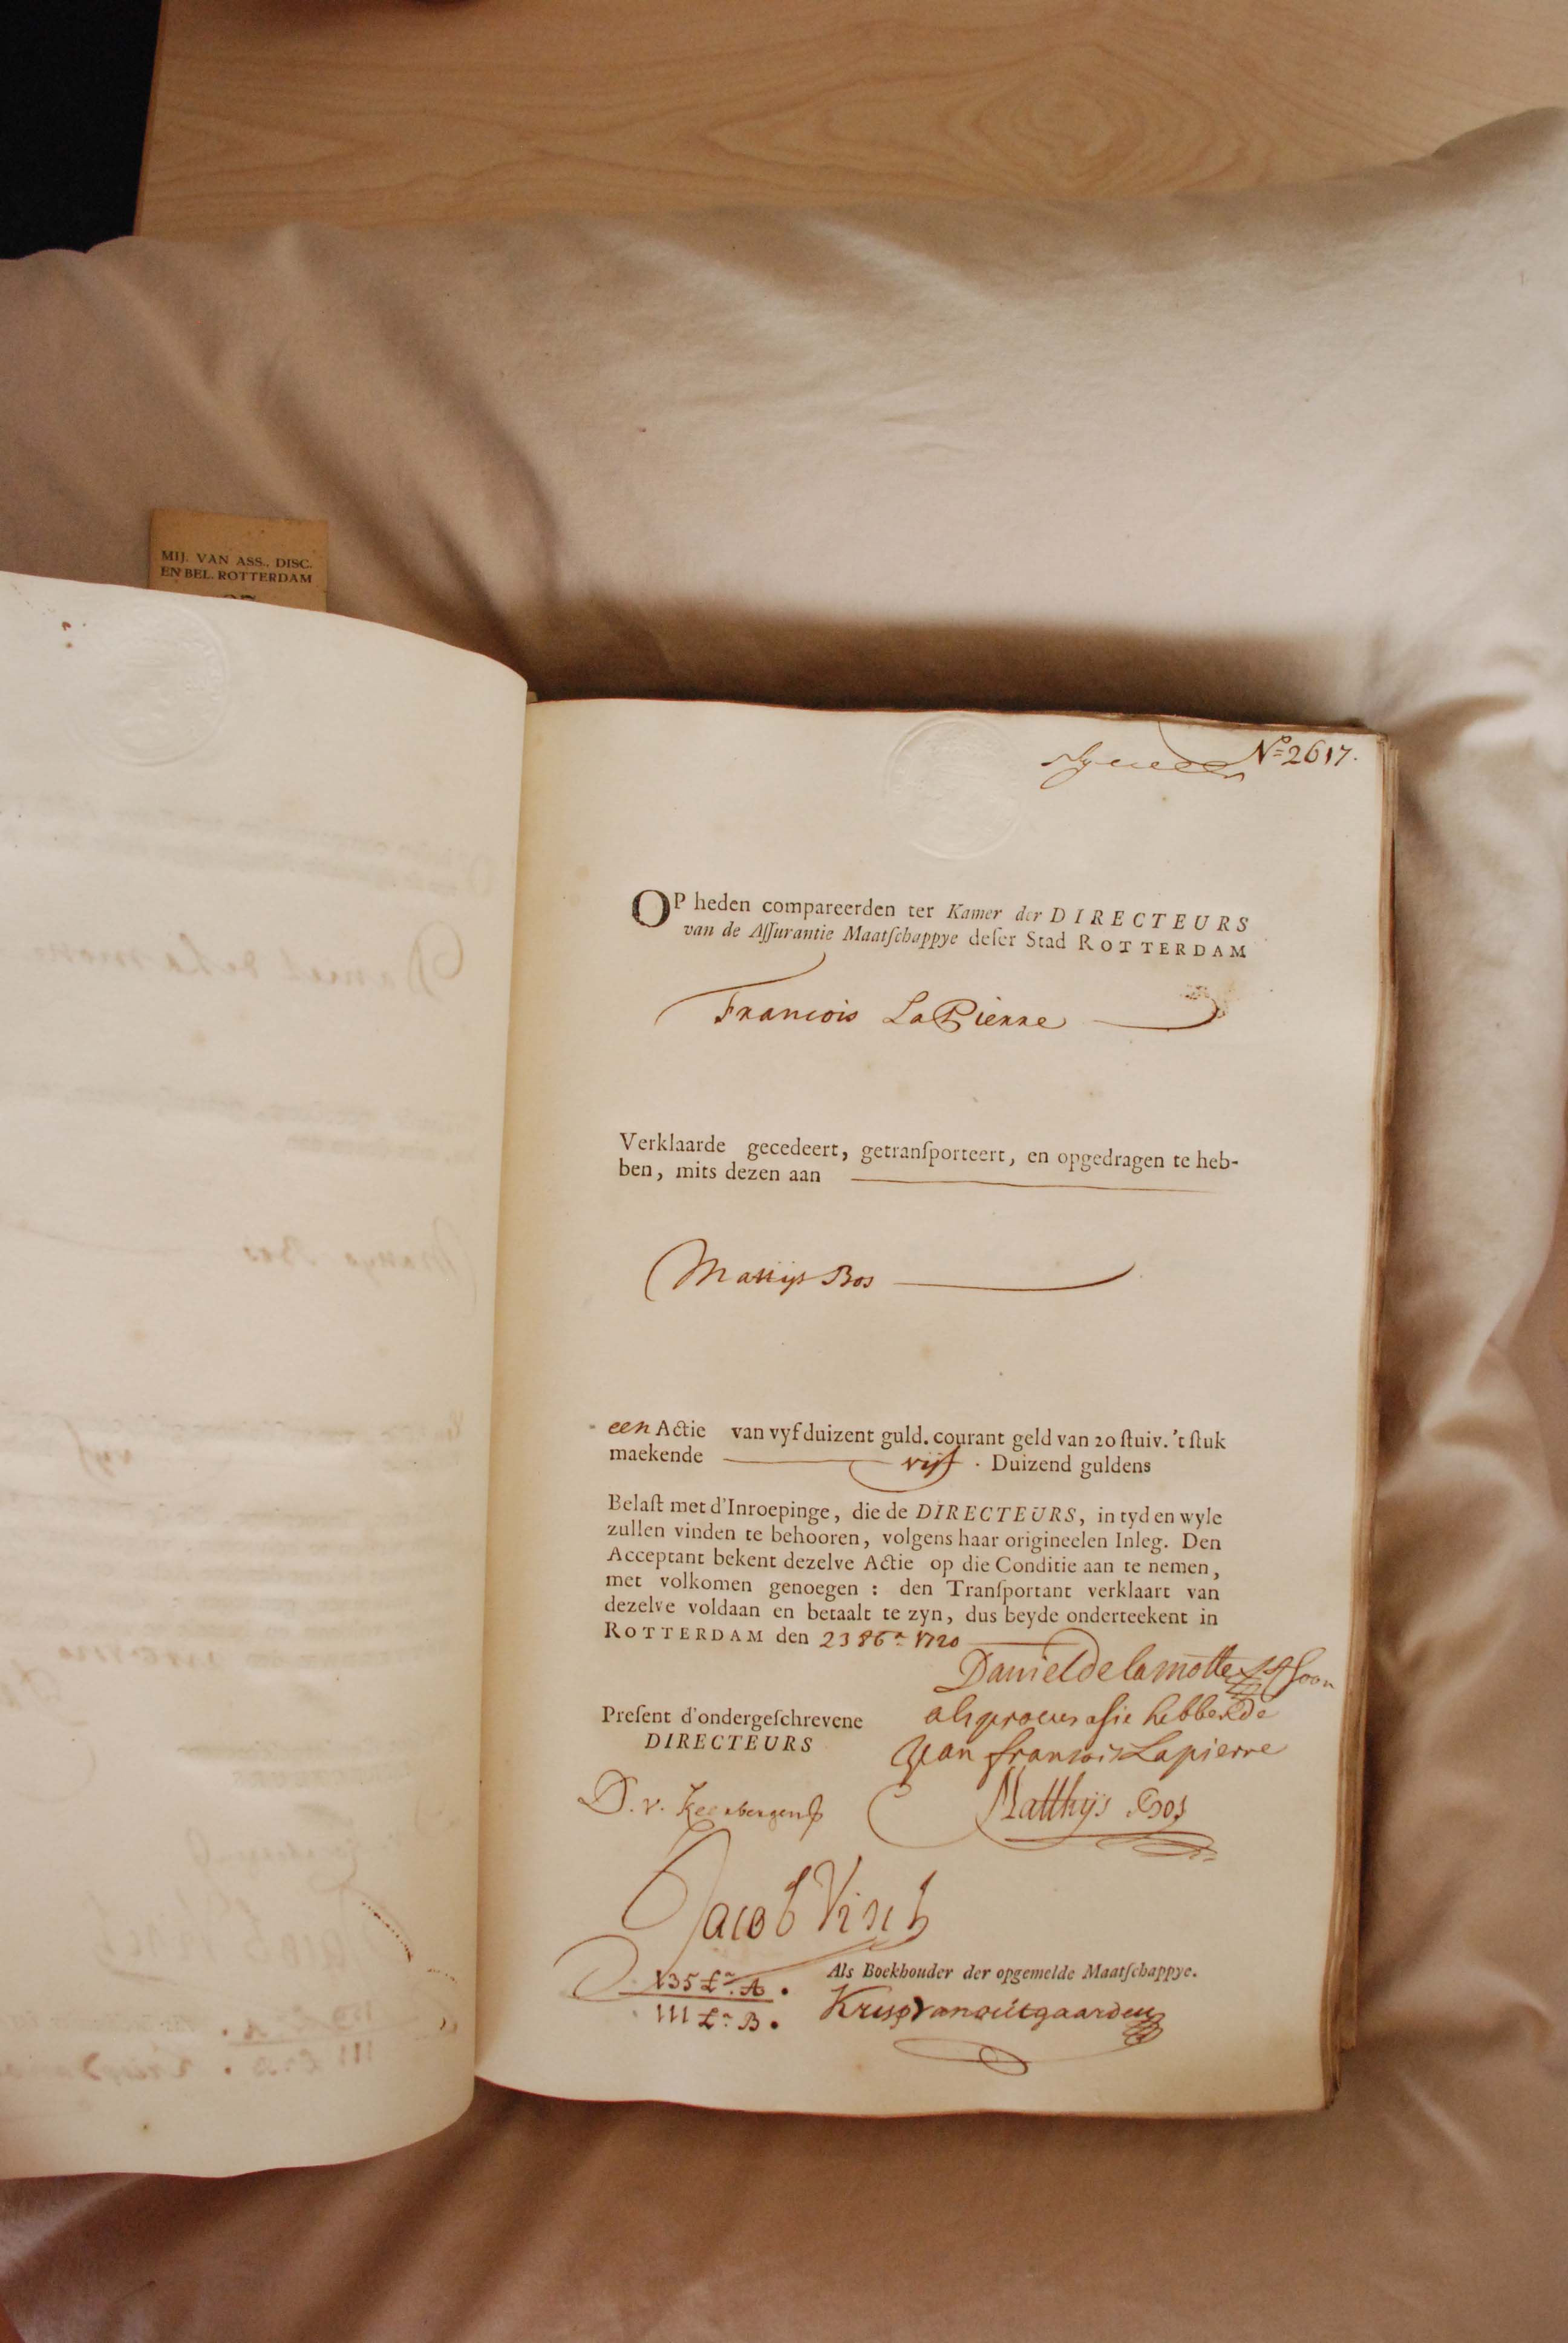 MIJ. VAN ASS., DISC.
EN BEL. ROTTERDAM
No 2617.
OP heden compareerden ter Kamer der DIRECTEURS
van de Aſſurantie Maatſchappye deſer Stad ROTTERDAM
Francois LaPierre
Verklaarde gecedeert, getranſporteert, en opgedragen te heb-
ben, mits dezen aan
Mattijs Bos
een Actie van vyf duizent guld. courant geld van 20 ſtuiv. 't ſtuk
maekende vijf . Duizend guldens
Belaſt met d'Inroepinge, die de DIRECTEURS, in tyd en wyle
zullen vinden te behooren, volgens haar origineelen Inleg. Den
Acceptant bekent dezelve Actie op die Conditie aan te nemen,
met volkomen genoegen : den Tranſportant verklaart van
dezelve voldaan en betaalt te zyn, dus beyde onderteekent in
ROTTERDAM den 23 8br 1720
Daniel de la motte
als procurasie hebbende
Preſent d'ondergeſchrevene
DIRECTEURS
Jean fransois Lapierre
Matthijs Bos
Jacob Visch
135 Lr. A.
111 Lr. B.
Als Boekhouder der opgemelde Maatſchappye.